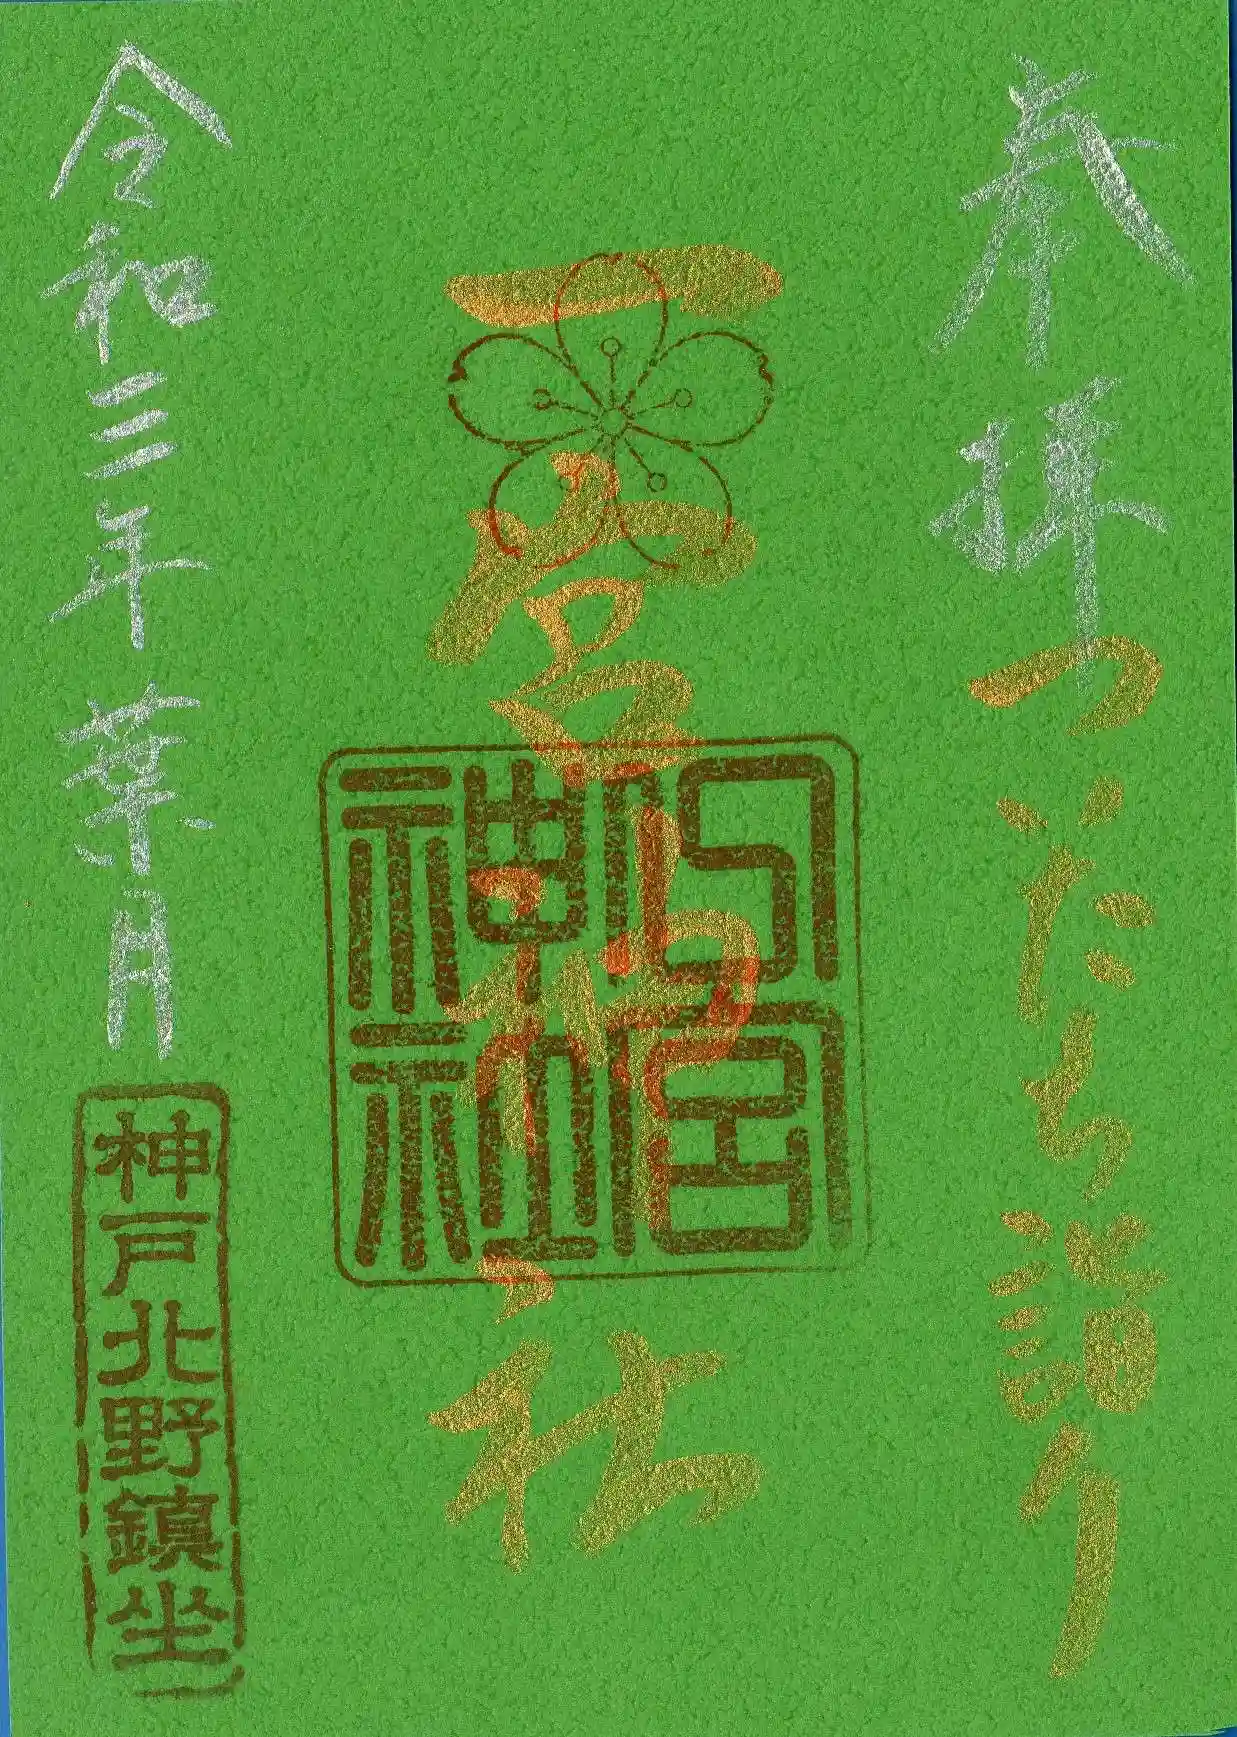 奉拝 ついたち詣り
一宮神社
神社
令和三年葉月
神戸北野鎮坐